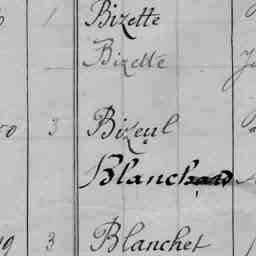 1 Bizette
Bizette
3 Bizeul
Blanchard
3 Blanchet